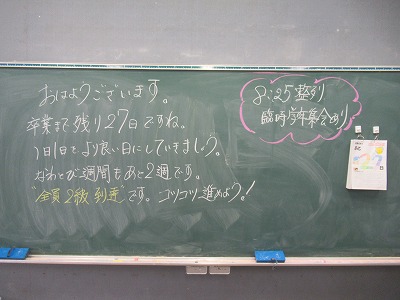 おはようございます。
卒業まで残り27日ですね。
1日1日をより良い日にしていきましょう。
なわとび週間もあと2週です。
"全員2級到達"です。コツコツ進めよう!
8:25整列
臨時卒集会あり